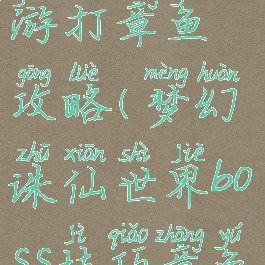 游打章鱼
gōng lüè mèng huàn
攻略(梦幻
zhū xiān shì jiè
诛仙世界bo
jì qiǎo zhāng yú
ss技巧章鱼